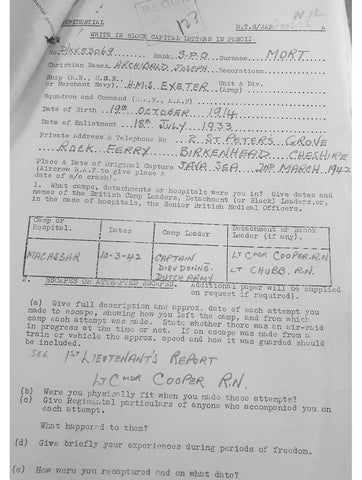 CONFIDENTIAL
M.I.9/JAP
WRITE IN BLOCK CAPITAL LETTERS IN PENCIL
No. Rank. S.P.O. Surname. MORT
Christian Names. ARCHIBALD JOSEPH. Decorations.
Ship (R.N., U.S.N., or Merchant Navy). H.M.S. EXETER Unit & Div. (Army)
Squadron and Command (R.A.F., A.A.F)
Date of Birth 19th OCTOBER 1914
Date of Enlistment 18th JULY 1933
Private Address & Telephone No ST PETERS GROVE
ROCK FERRY BIRKENHEAD CHESHIRE
Place & Date of Original Capture JAVA SEA MARCH 1942
(Aircrew R.A.F. to give place &
date of a/c crash).
1. What camps, detachments or hospitals were you in? Give dates and
names of the British Camp Leaders, Detachment (or Block) Leaders, or,
in the case of hospitals, the Senior British Medical Officers.
Camp or Hospital. Dates Camp Leader Detachment or Block Leader (if any).
MACASSAR 10-3-42 CAPTAIN DIEUDONNE. DUTCH ARMY LT CMDR COOPER R.N. LT CHUBB. R.N.
2. ESCAPES OR ATTEMPTED ESCAPES. Additional paper will be supplied
on request if required).
(a) Give full description and approx. date of each attempt you
made to escape, showing how you left the camp, and from which
camp each attempt was made. State whether there was an air-raid
in progress at the time or not. If an escape was made from a
train or vehicle the approx. speed and how it was guarded should
be included.
SEE 1st LIEUTENANT'S REPORT
LT CMDR COOPER R.N.
(b) Were you physically fit when you made these attempts?
(c) Give Regimental particulars of anyone who accompanied you on
each attempt.
What happened to them?
(d) Give briefly your experiences during periods of freedom.
(e) How were you recaptured and on what date?